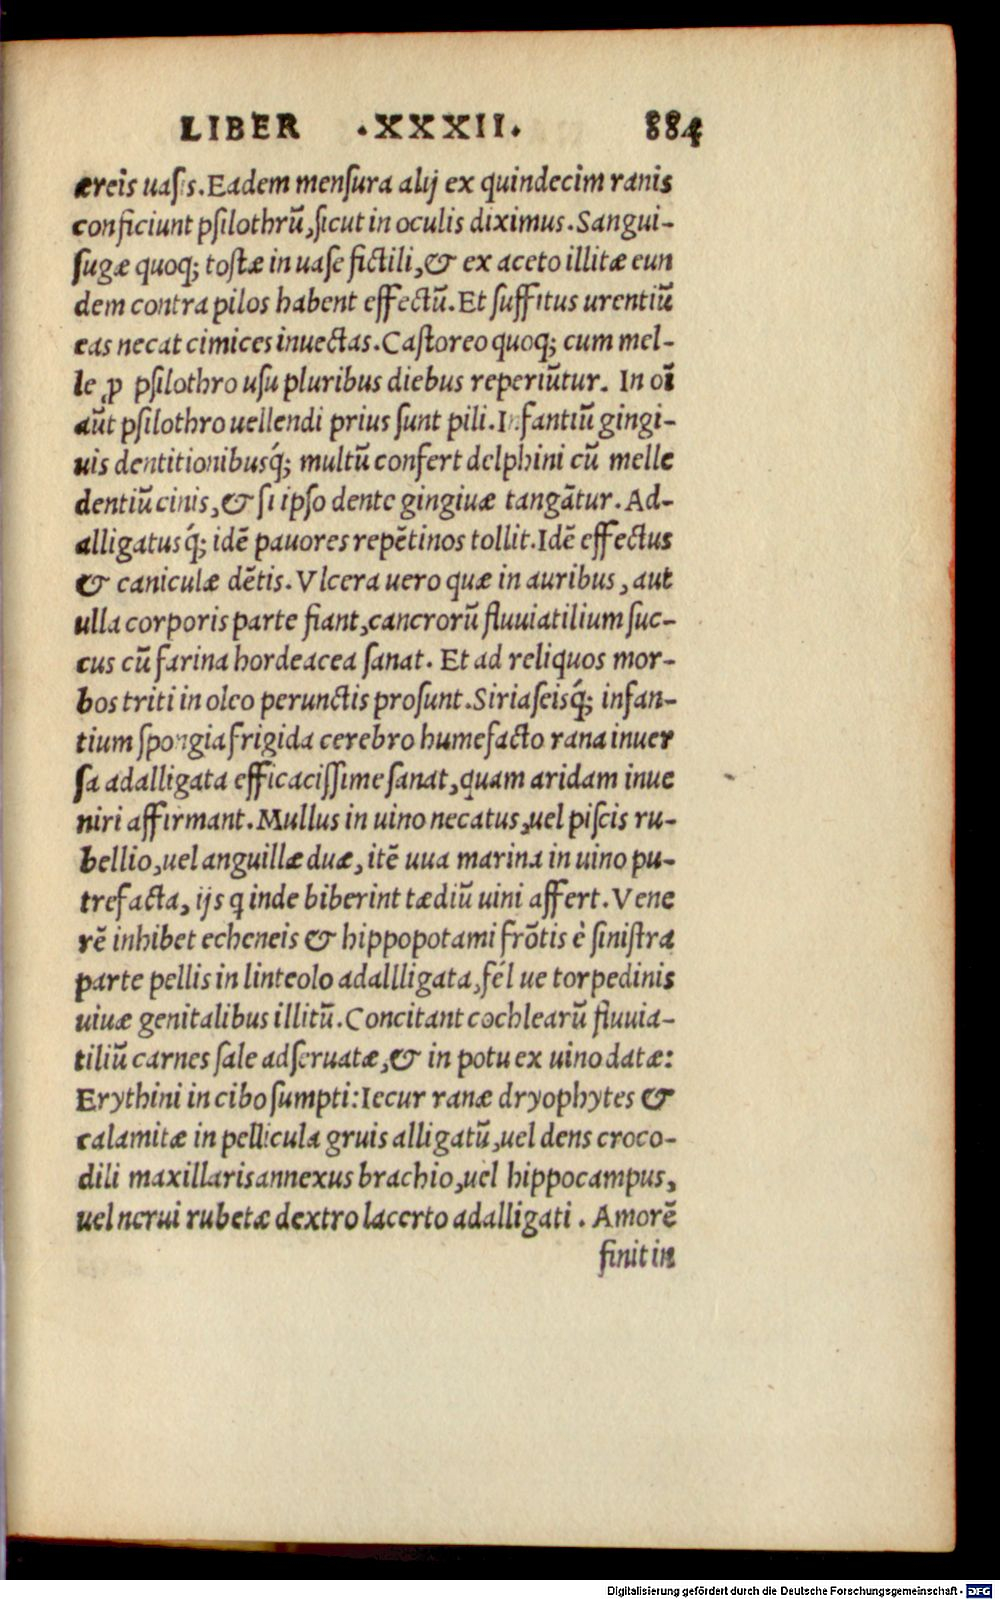 LIBER .XXXII. 884
æreis uasis. Eadem mensura alij ex quindecim ranis
conficiunt psilothrū, sicut in oculis diximus. Sangui-
sugæ quoq; tostæ in uase fictili, & ex aceto illitæ eun
dem contra pilos habent effectū. Et suffitus urentiū
eas necat cimices inuectas. Castoreo quoq; cum mel-
le ꝓ psilothro usu pluribus diebus reperiūtur. In oī
aūt psilothro uellendi prius sunt pili. Infantiū gingi-
uis dentitionibusq́; multū confert delphini cū melle
dentiū cinis, & si ipso dente gingiuæ tangātur. Ad-
alligatusq́; idē pauores repētinos tollit. Idē effectus
& caniculæ dētis. Vlcera uero quæ in auribus, aut
ulla corporis parte fiant, cancrorū fluuiatilium suc-
cus cū farina hordeacea sanat. Et ad reliquos mor-
bos triti in oleo perunctis prosunt. Siriaseisq́; infan-
tium spongia frigida cerebro humefacto rana inuer
sa adalligata efficacissime sanat, quam aridam inue
niri affirmant. Mullus in uino necatus, uel piscis ru-
bellio, uel anguillæ duæ, itē uua marina in uino pu-
trefacta, ijs q inde biberint tædiū uini affert. Vene
rē inhibet echeneis & hippopotami frōtis è sinistra
parte pellis in linteolo adallligata, fél ue torpedinis
uiuæ genitalibus illitū. Concitant cochlearū fluuia-
tiliū carnes sale adseruatæ, & in potu ex uino datæ:
Erythini in cibo sumpti: Iecur ranæ dryophytes &
calamitæ in pellicula gruis alligatū, uel dens croco-
dili maxillaris annexus brachio, uel hippocampus,
uel nerui rubetæ dextro lacerto adalligati. Amorē
finit in
Digitalisierung gefördert durch die Deutsche Forschungsgemeinschaft - DFG